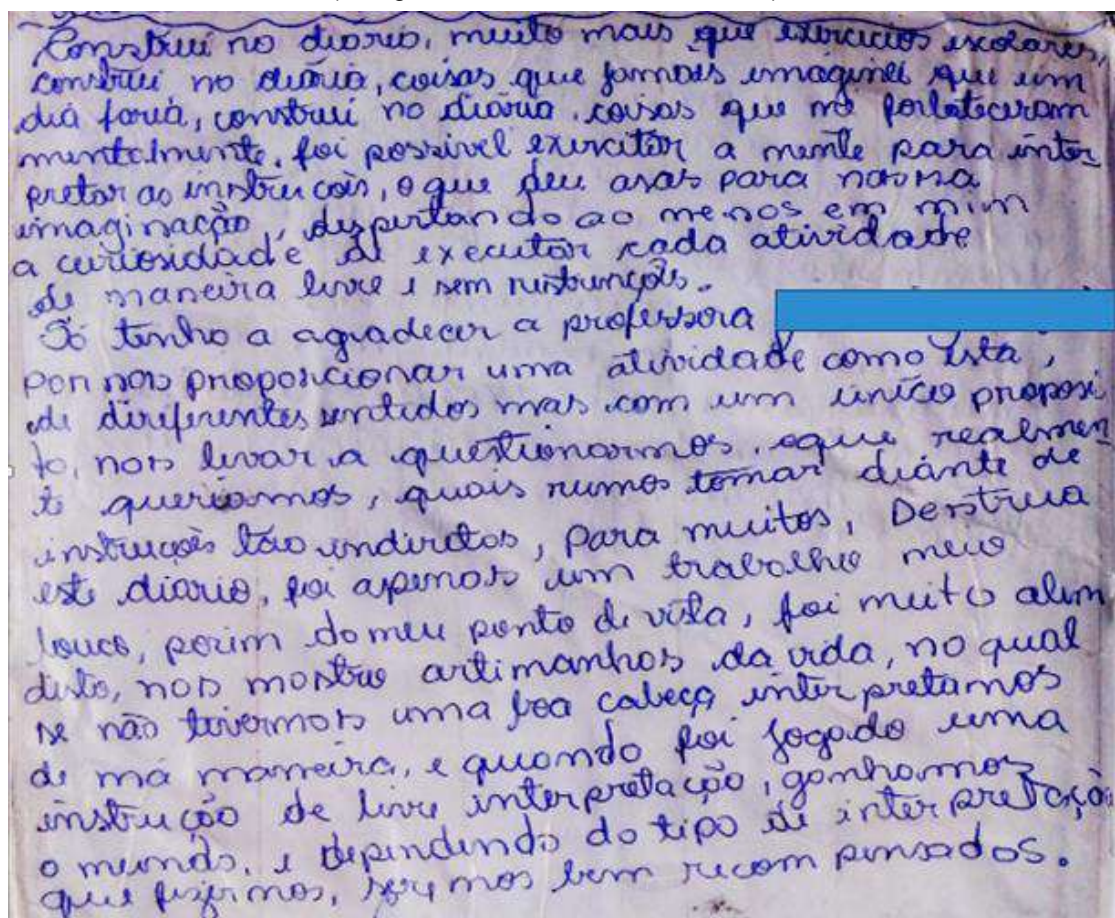 Construi no diario, muito mais que exercicios escolares,
construi no diário, coisas que jamais imaginei que um
dia faria, construi no diário coisas que me fortaleceram
mentalmente, foi possivel exercitar a mente para inter
pretar as instrucois, o que deu asas para nossa
imaginação, dispertando ao menos em mim
a curiosidade de executar cada atividade
de maneira livre e sem
Só tenho a agradecer a professora
por nos proporcionar uma atividade como esta,
de direferentes sentidos mas com um único proposi
to, nos levar a questionarmos, oque realmen
te queriamos, quais rumos tomar diante de
instrucois tão indiretas, Para muitos, Derstrua
este diario, foi apenas um trabalho meio
louco, porim do meu ponto de vista, foi muito alim
disto, nos mostro artimanhas da vida, no qual
se não tivermos uma boa cabeça interpretamos
di má maneira, e quando foi jogado uma
instrução de livre interpretação, ganhamos
o mundo, e dependendo do tipo de interpretação
que fizermos, seremos bem recompensados.